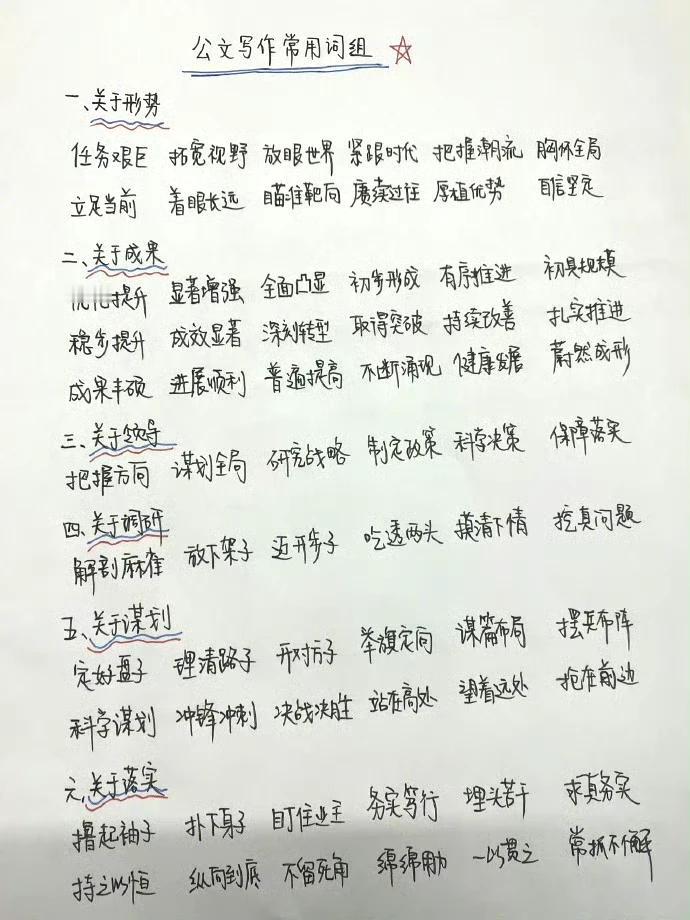 公文写作常用词组
一、关于形势
任务艰巨 拓宽视野 放眼世界 紧跟时代 把握潮流 胸怀全局
立足当前 着眼长远 瞄准靶向 赓续过往 厚植优势 自信坚定
二、关于成果
优化提升 显著增强 全面凸显 初步形成 有序推进 初具规模
稳步提升 成效显著 深刻转型 取得突破 持续改善 扎实推进
成果丰硕 进展顺利 普遍提高 不断涌现 健康发展 蔚然成形
三、关于领导
把握方向 谋划全局 研究战略 制定政策 科学决策 保障落实
四、关于调研
解剖麻雀 放下架子 迈开步子 吃透两头 摸清下情 挖真问题
五、关于谋划
定好盘子 理清路子 开对方子 举旗定向 谋篇布局 摆兵布阵
科学谋划 冲锋冲刺 决战决胜 站在高处 望着远处 抢在前边
六、关于落实
撸起袖子 扑下身子 盯住业主 务实笃行 埋头苦干 求真务实
持之以恒 纵向到底 不留死角 绵绵用力 一以贯之 常抓不懈